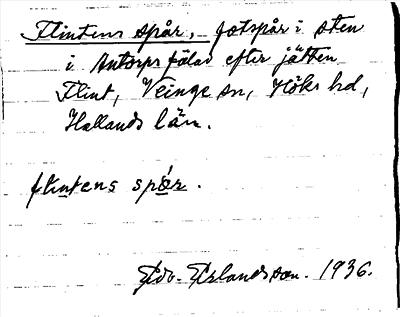 Flintens spår, fotspår i sten
i Antorps fälad efter jätten
Flint, Veinge sn, Höks hd,
Hallands län.
flintens spår.
Edv. Erlandsson. 1936.